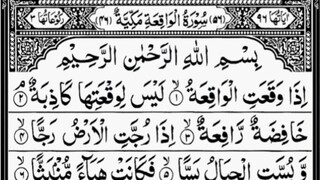 اٰيَاتُهَا ٩٦ (٥٦) سُوْرَةُ الْوَاقِعَةِ مَكِّيَّةٌ (٤٦) رُكُوْعَاتُهَا ٣
بِسْمِ اللّٰهِ الرَّحْمٰنِ الرَّحِيْمِ
اِذَا وَقَعَتِ الْوَاقِعَةُ ۙ‏﴿١﴾ لَيْسَ لِوَقْعَتِهَا كَاذِبَةٌ ۘ‏﴿٢﴾
خَافِضَةٌ رَّافِعَةٌ ۙ‏﴿٣﴾ اِذَا رُجَّتِ الْاَرْضُ رَجًّا ۙ‏﴿٤﴾
وَّبُسَّتِ الْجِبَالُ بَسًّا ۙ‏﴿٥﴾ فَكَانَتْ هَبَآءً مُّنْۢبَثًّا ۙ‏﴿٦﴾